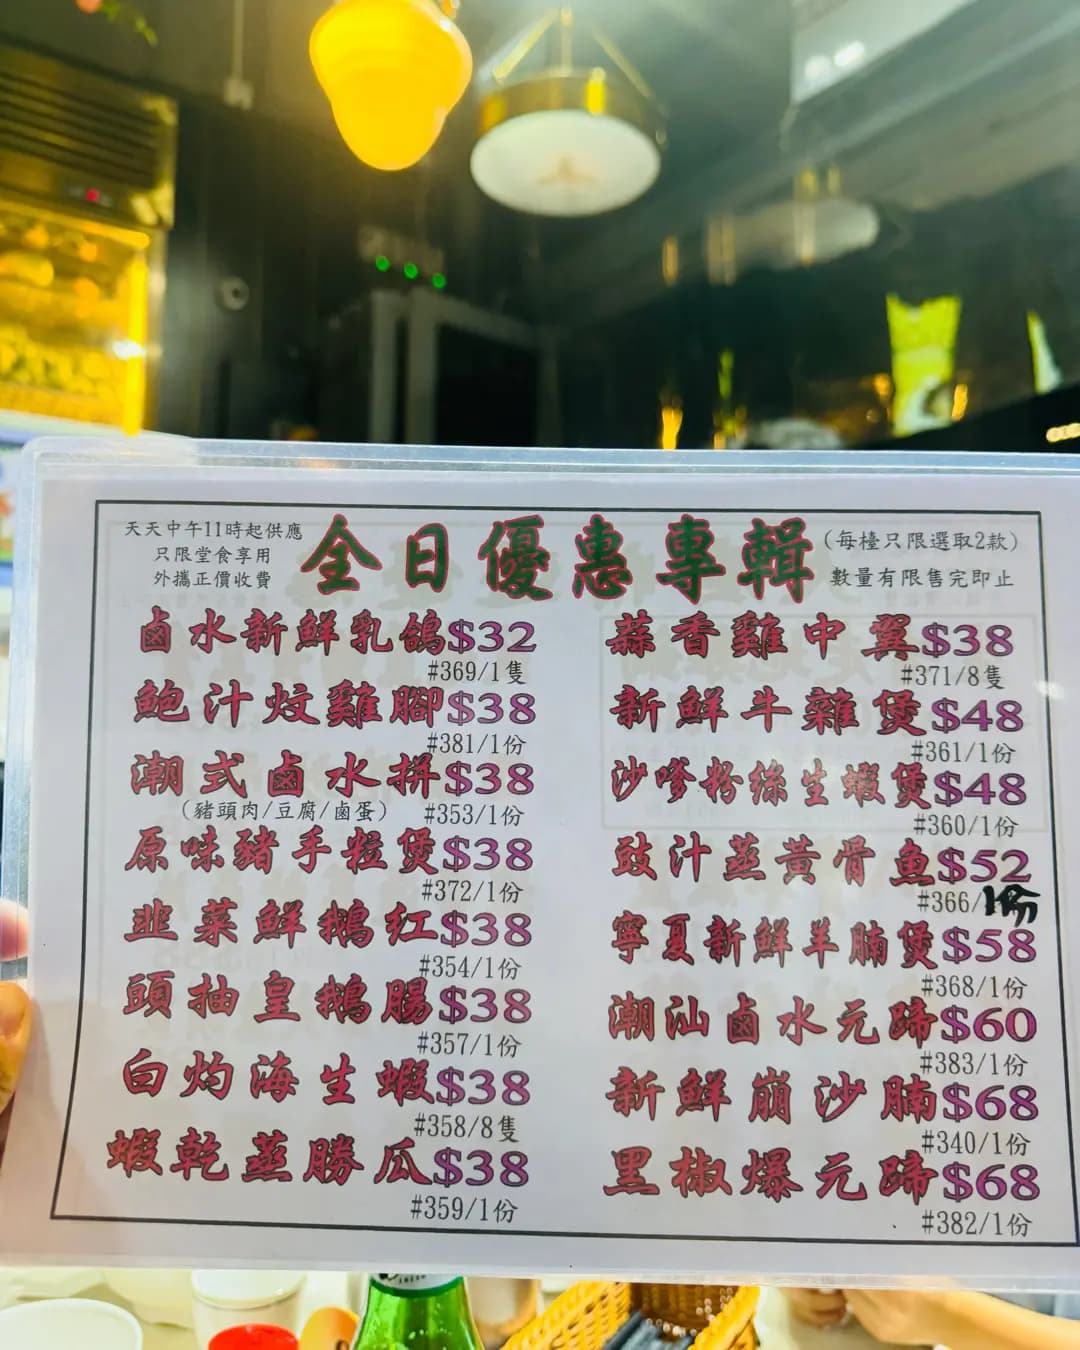 天天中午11時起供應
只限堂食享用
外攜正價收費
全日優惠專輯
(每檯只限選取2款)
數量有限售完即止
鹵水新鮮乳鴿$32
#369/1隻
鮑汁炆雞腳$38
#381/1份
潮式鹵水拼$38
(豬頭肉/豆腐/鹵蛋) #353/1份
原味豬手粒煲$38
#372/1份
韭菜鮮鵝红$38
#354/1份
頭抽皇鵝腸$38
#357/1份
白灼海生蝦$38
#358/8隻
蝦乾蒸勝瓜$38
#359/1份
蒜香雞中翼$38
#371/8隻
新鮮牛雜煲$48
#361/1份
沙嗲粉絲生蝦煲$48
#360/1份
豉汁蒸黃骨魚$52
#366/1份
寧夏新鮮羊腩煲$58
#368/1份
潮汕鹵水元蹄$60
#383/1份
新鮮崩沙腩$68
#340/1份
黑椒爆元蹄$68
#382/1份